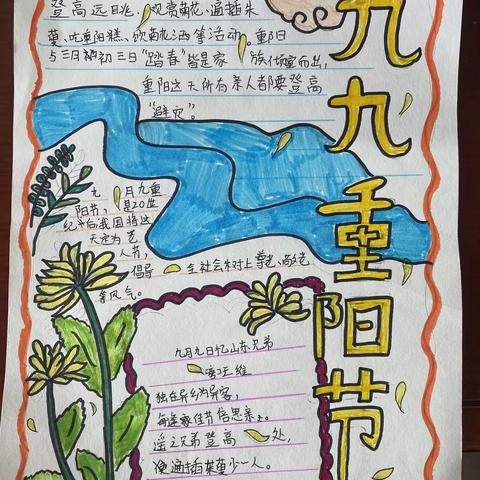 登高远眺、观赏菊花、遍插朱
萸、吃重阳糕、饮菊花酒等活动。重阳日
与三月初三日"踏春"皆是家族倾室而出,
重阳这天所有亲人都要登高
"避灾"。
九月九重
阳节,是20世
纪 后我国将这
天定为老
人节,
倡导全社会树上尊老、敬老
等风气。
九月九日忆山东兄弟
王维
独在异乡为异客,
每逢佳节倍思亲。
遥 兄弟登高处,
遍插茱萸少一人。
九九重阳节